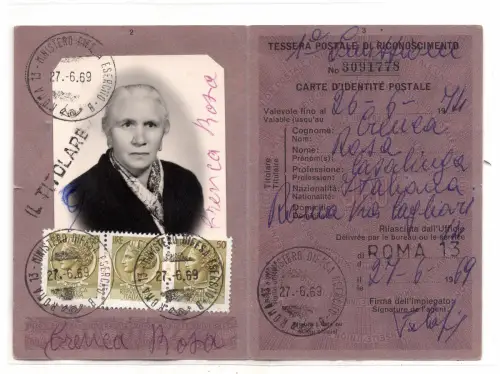 2
ROMA 13 - MINISTERO DIFESA ESERCITO - B
27.-6.69
IL TITOLARE
Crenca Rosa
LIRE 50
ROMA 13 - MINISTERO DIFESA ESERCITO - B
27.-6.69
ROMA 13 - MINISTERO DIFESA ESERCITO - B
27.-6.69
Crenca Rosa
3
TESSERA POSTALE DI RICONOSCIMENTO
No 3091778
CARTE D'IDENTITÉ POSTALE
Valevole fino al 26-6-1974
Valable jusqu'au
Cognome: Crenca
Nom:
Nome: Rosa
Prénom(s):
Professione: Casalinga
Profession:
Nazionalità Italiana
Nationalité
Titolare
Titulaire
Domicilio Roma Via Cagliari
Rilasciata dall'Ufficio
Délivrée par le bureau ou le service
di ROMA 13
de
il 27-6 1969
le
ROMA 13 - MINISTERO DIFESA ESERCITO - B
27.-6.69
Firma dell'Impiegato
Signature de l'agent